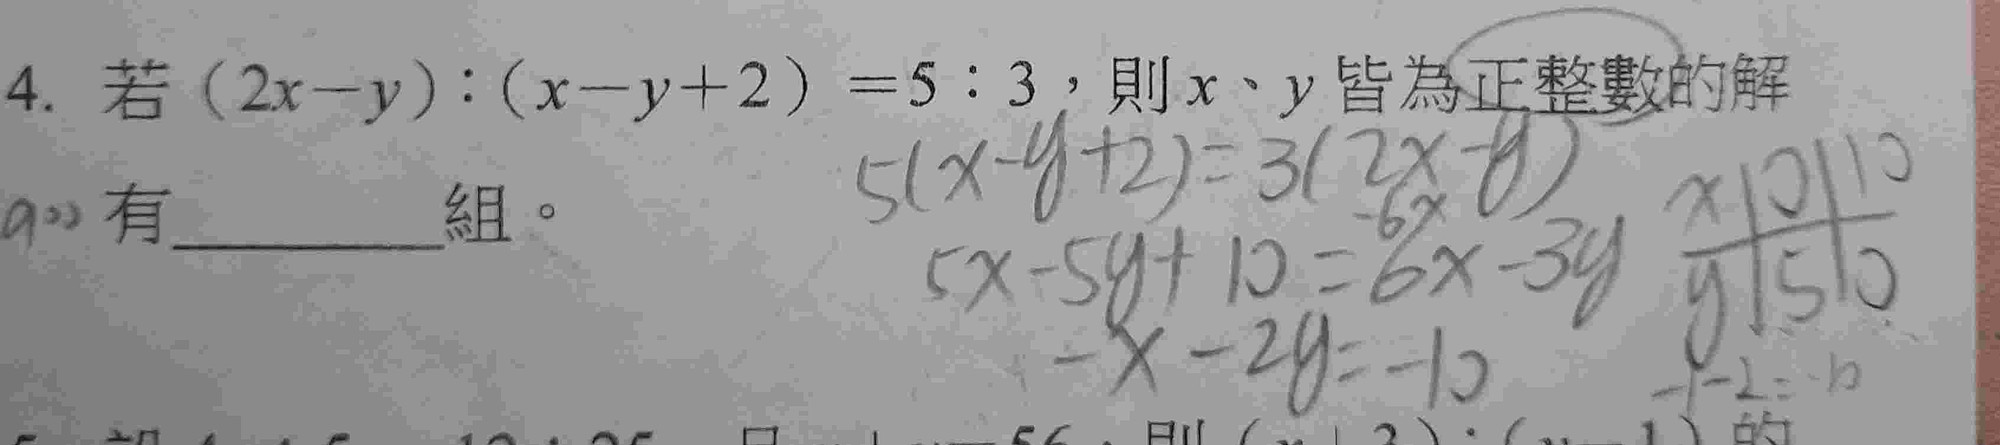 4. 若（2x－y）：（x－y＋2）＝5：3，則 x、y 皆為正整數的解
有________組。
5(x-y+2)=3(2x-y)
-6x
5x-5y+10=6x-3y
-x-2y=-10
x | 0 | 10
y | 5 | 0
-1-2=-10